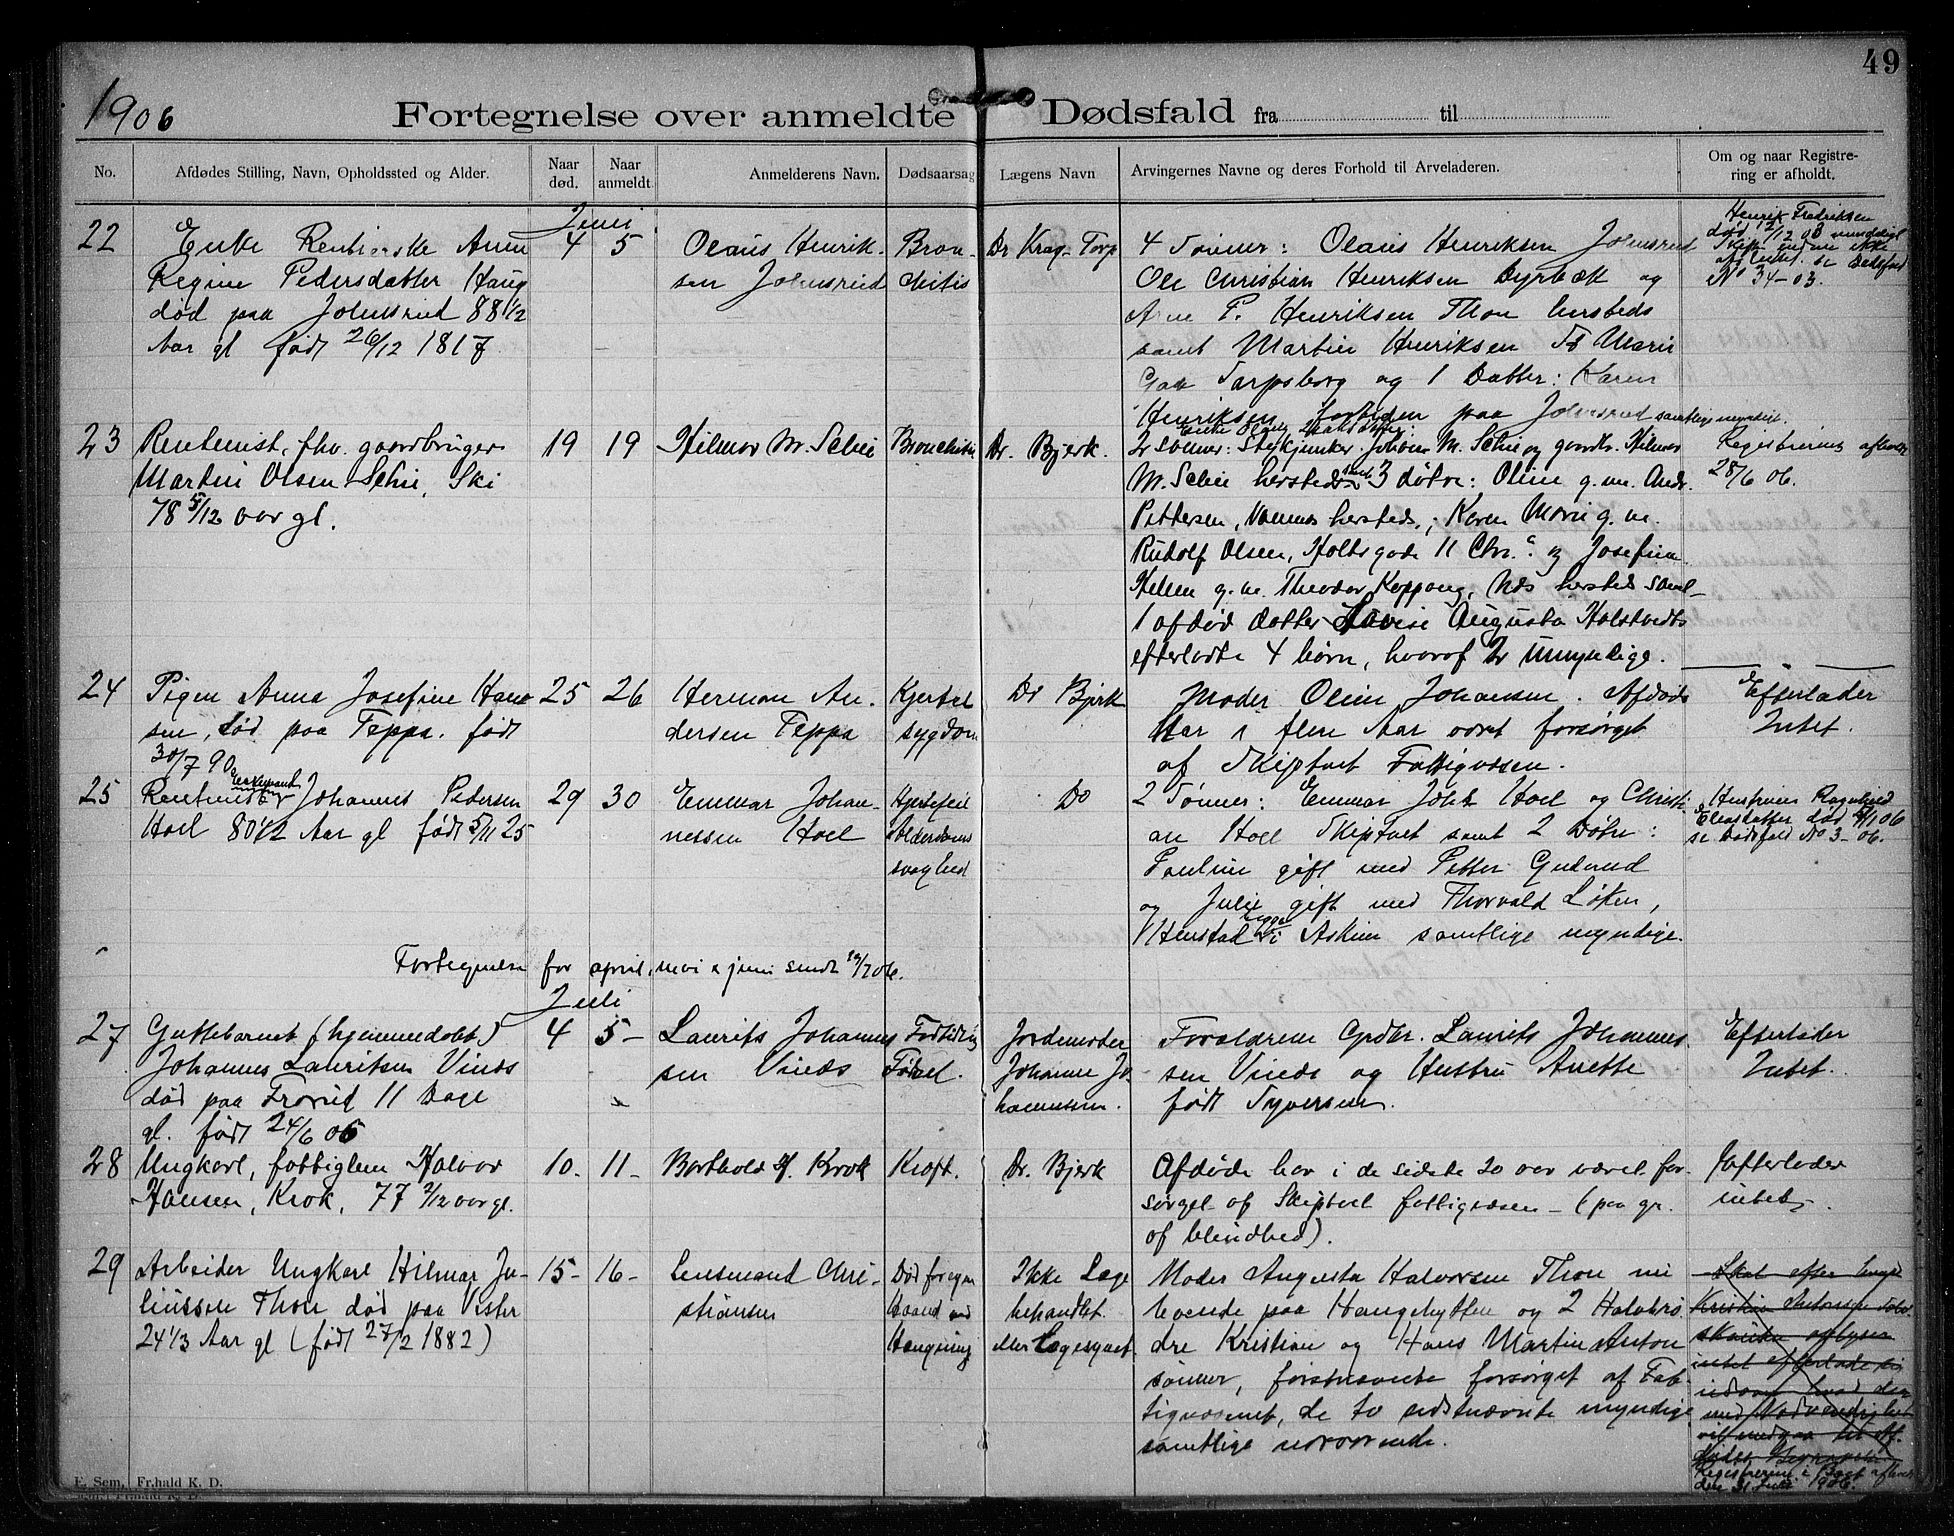 49
1906
Fortegnelse over anmeldte Dødsfald fra til
No.
Afdødes Stilling, Navn, Opholdssted og Alder.
Naar død.
Naar anmeldt.
Anmelderens Navn.
Dødsaarsag
Lægens Navn
Arvingernes Navne og deres Forhold til Arveladeren.
Om og naar Registre-
ring er afholdt.
Juni
22
Enke Rentierske Anne
Regine Pedersdatter Haug
død paa Johnsrud 88 1/2
Aar gl født 26/12 1817
4
5
Olaus Henrik-
sen Johnsrud
Bron-
chitis
Dr Krag-Torp
4 Sønner: Olaus Henriksen Johnsrud
Ole Christian Henriksen Dyrbæk og
Arne P. Henriksen Thon hersteds
samt Martin Henriksen St Marie
Gade Sarpsborg og 1 Datter: Karen
Henriksen, paa Johnsrud samtlige myndige.
Henrik Fredriksen
død 12/12 03
endnu ikke
se Dødsfald
No 34-03.
23
Rentenist, fhv. gaardbruger
Martin Olsen Schie, Ski
78 5/12 aar gl.
19
19
Hilmar M. Schie
Bronchitis
Dr. Bjerk.
2 sønner: Johan M. Schie og gaardbr. Hilmar
M. Schie hersteds samt 3 døtre: Oline g. m. Andr.
Pettersen, hersteds, Karen Marie g. m.
Rudolf Olsen, Holtegade 11 Chr.a og Josefine
Helene g. m. Theodor Koppang, Næs hersteds samt
1 afdød datter Lovise Augusta Holstvedts
efterladte 4 børn, hvoraf 2 umyndige.
Registrering afholdt
28/6 06.
24
Pigen Anna Josefine Han-
sen, død paa Teppa. født
30/7 90
25
26
Herman An-
dersen Teppa
Kjertel
sygdom
Dr Bjerk
Moder Oline Johansen. Afdøde
har i flere Aar vært forsørget
af Skiptvet Fattigvæsen.
Efterlader
Intet.
25
Enkemand
Rentenist Johannes Pedersen
Hoel 80 1/2 Aar gl født 5/11 25
29
30
Emmar Johan-
nessen Hoel
Hjertefeil
Alderdoms
svaghed
Do
2 Sønner: Emmar Johs Hoel og Christi-
an Hoel Skiptvet samt 2 Døtre:
Pauline gift med Petter Guderud
og Julie gift med Thorvald Løken,
Henstad i Askim samtlige myndige.
Hustruen Ragnhild
død 06
se Dødsfald No 3-06.
Fortegnelse for april, mai & juni sendt 19/7 06.
Juli
27
Guttebarnet (hjemmedøbt)
Johannes Lauritsen Vinds
død paa Frorud 11 Dage
gl. født 24/6 06
4
5-
Laurits Johannes-
sen Vinds
For tidlig
Fødsel.
Jordemoder
Johanne Jo-
hannessen.
Forældrene Grdbr. Laurits Johannes-
sen Vinds og Hustru Anette
født Syversen.
Efterlader
Intet.
28
Ungkarl, fattiglem Halvor
Hansen, Krok, 77 2/12 aar gl.
10.
11-
Barthold H. Krok
Kræft.
Dr. Bjerk
Afdøde har i de sidste 20 aar været for-
sørget af Skiptvet fattigvæsen - (paa gr.
af blindhed).
Efterlader
intet.
29
Arbeider Ungkarl Hilmar Ju-
liussen Thon død paa Vister
24 1/3 Aar gl (født 27/2 1882)
15-
16-
Lensmand Chri-
stiansen
Død for egen
Haand ved
Hængning
Ikke Læge
behandlet
eller Lægesynet
Moder Augusta Halvorsen Thon nu
boende paa Haugehytten og 2 Halvbrø
dre Kristian og Hans Martin Anton
sønner, førstnævnte forsørget af Fat-
tigvæsenet, de to sidstnævnte myndige
samtlige nærværende.
Skal efter
Kristian
intet efterlade sig
udover hvad der
med Nødvendighed
vil medgaa til
Registrering i Boet afholdt
den 31 Juli 1906.
E. Sem, Fr.hald K. D.